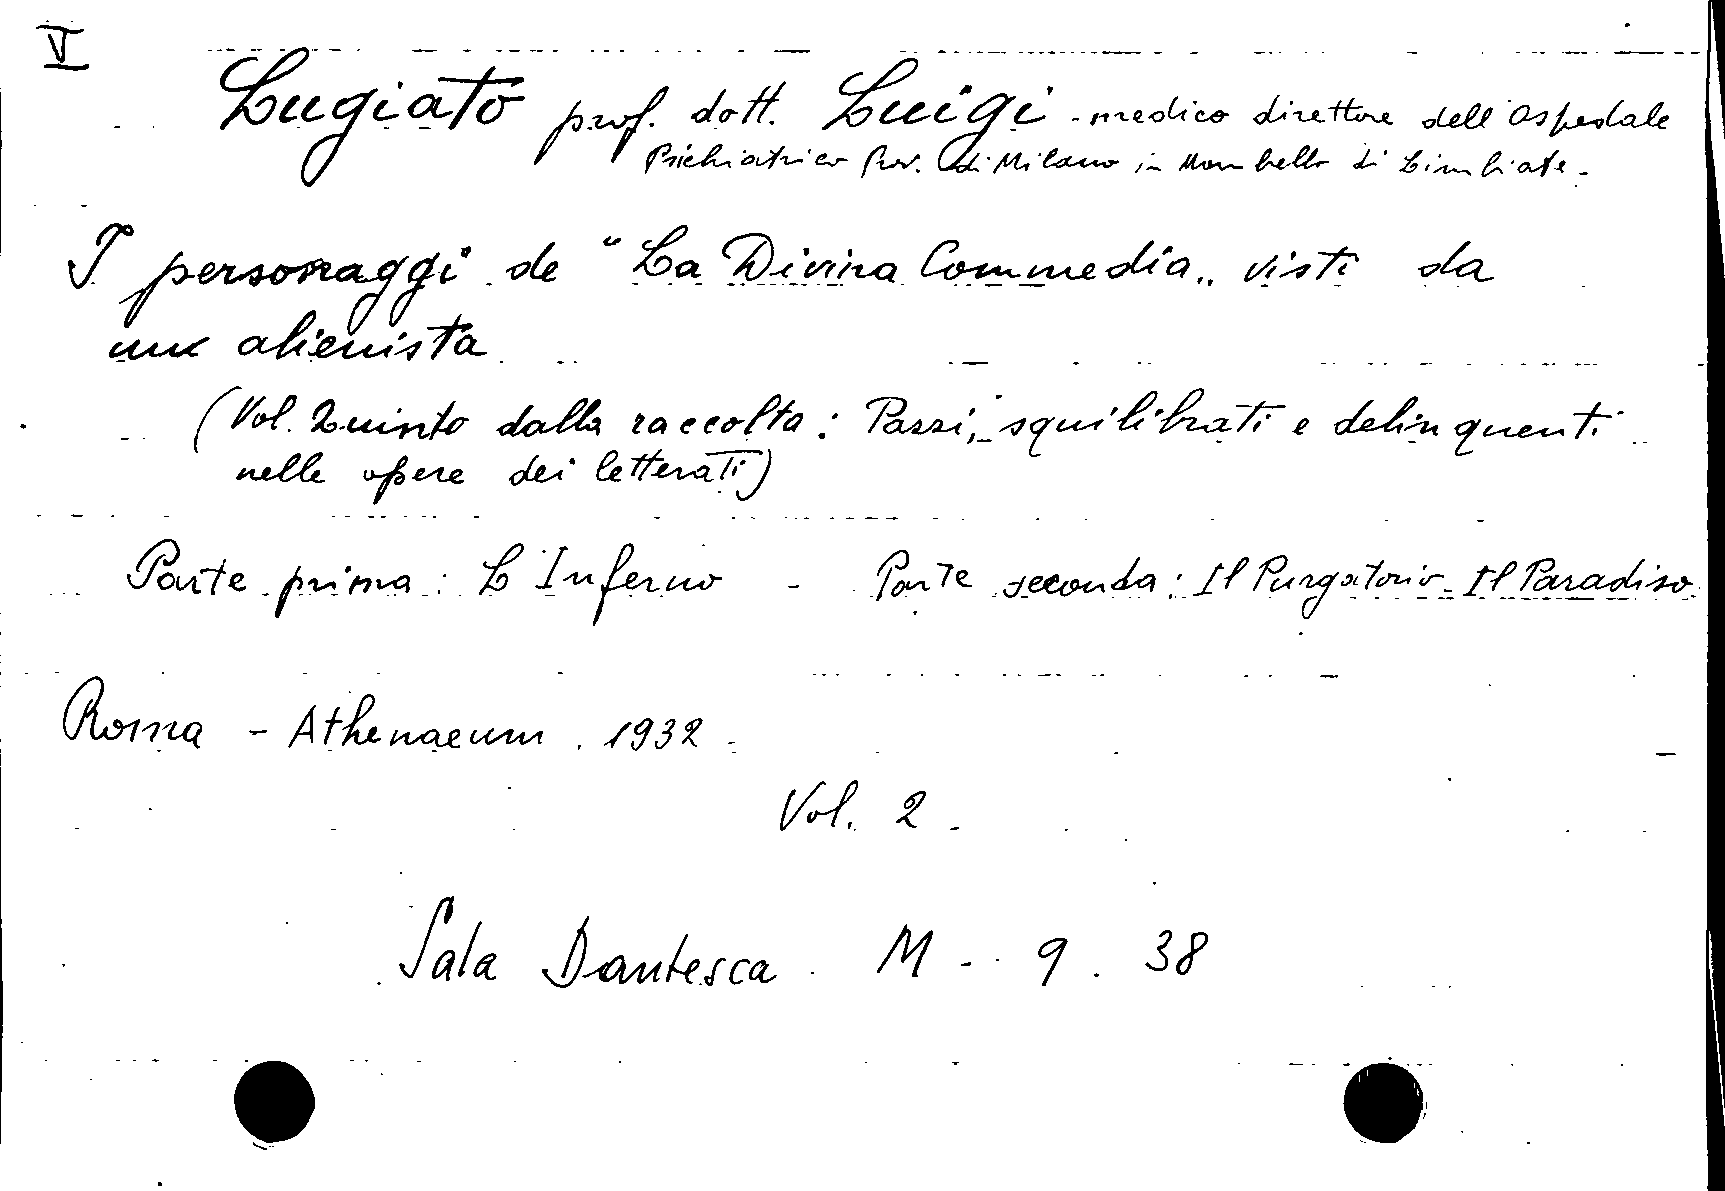 V
Lugiato prof. dott. Luigi - medico direttore dell'Ospedale
Psichiatrico Prov. di Milano in Mombello di Limbiate.
I personaggi de "La Divina Commedia„ visti da
un alienista
(Vol. Quinto dalla raccolta: Pazzi, squilibrati e delinquenti
nelle opere dei letterati)
Parte prima: L'Inferno - Parte seconda: Il Purgatorio - Il Paradiso
Roma - Athenaeum. 1932.
Vol. 2.
Sala Dantesca. M - 9. 38